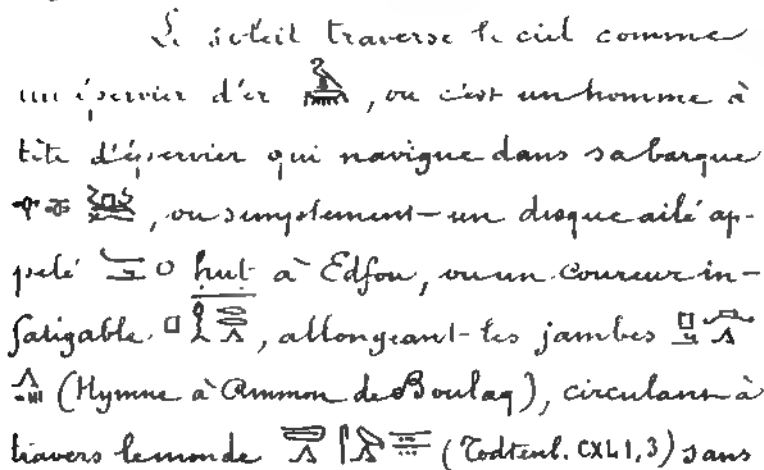 Le soleil traverse le ciel comme
un épervier d'or, ou c'est un homme à
tête d'épervier qui navigue dans sa barque
, ou simplement un disque ailé ap-
pelé hut à Edfou, ou un coureur in-
fatigable, allongeant les jambes
(Hymne à Ammon de Boulaq), circulant à
travers le monde (Todtenb. CXLI, 3) sans